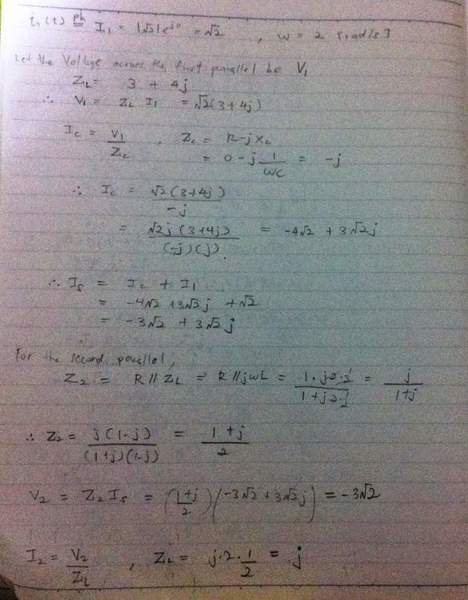 i₁(t) ph= I₁ = |√2| e^j0 = √2 , ω = 2 [rad/s]
Let the Voltage across the first parallel be V₁
Z_L = 3 + 4j
∴ V₁ = Z_L I₁ = √2(3+4j)
I_c = V₁/Z_c , Z_c = R-jX_c
= 0 - j 1/ωC = -j
∴ I_c = √2(3+4j)/-j
= √2j(3+4j)/(-j)(j) = -4√2 + 3√2j
∴ I_s = I_c + I₁
= -4√2 + 3√2j + √2
= -3√2 + 3√2j
For the second parallel,
Z₂ = R//Z_L = R//jωL = 1·j2·½/1+j2·½ = j/1+j
∴ Z₂ = j(1-j)/(1+j)(1-j) = 1+j/2
V₂ = Z₂I_s = (1+j/2)(-3√2+3√2j) = -3√2
I₂ = V₂/Z_L , Z_L = j·2·1/2 = j